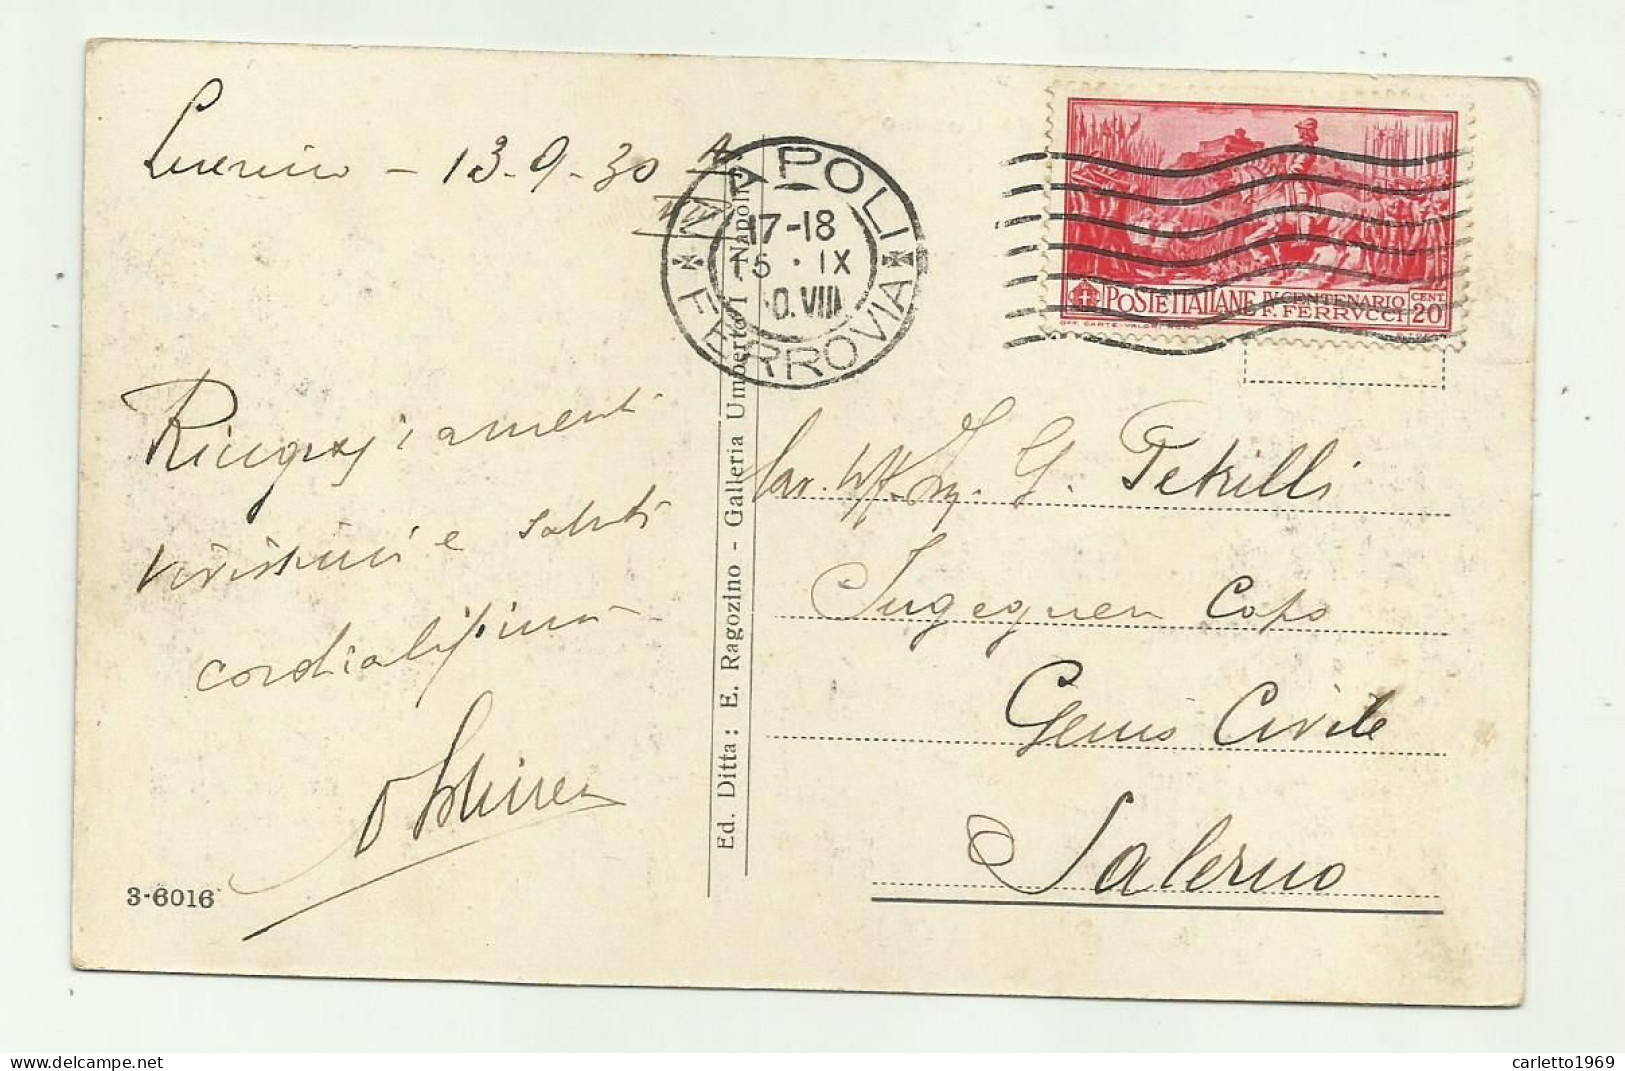 Lucrino - 13-9-30 A
VIII
NAPOLI
17-18
15 · IX
0.VIII
FERROVIA
POSTE ITALIANE IV CENTENARIO F. FERRVCCI CENT. 20
OFF. CARTE-VALORI ROMA
Ringraziamenti
vivissimi e saluti
cordialissimi
Cav. Uff. Ing. G. Petrilli
Ingegnere Capo
Genio Civile
Salerno
Ed. Ditta: E. Ragozino - Galleria Umberto I - Napoli
3-6016
carletto1969
delcampe.net